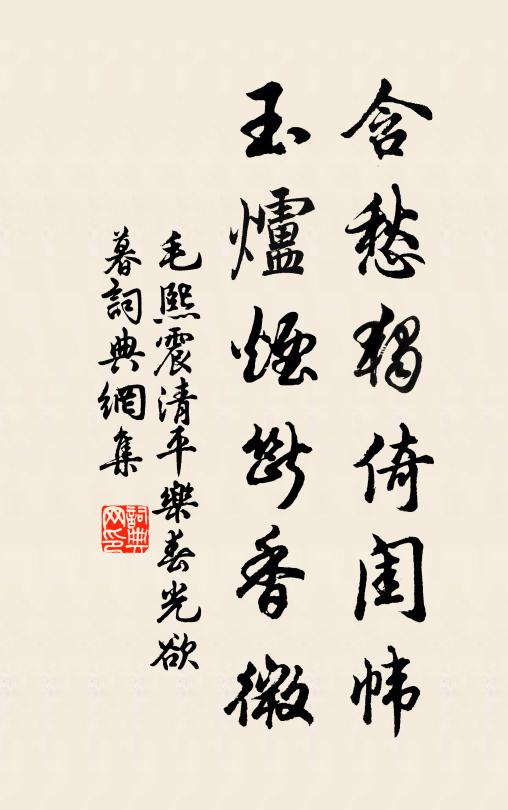 含愁獨倚閨幃
玉爐煙斷香微
毛熙震清平樂春光欲
暮詞典網集
詞典
网印